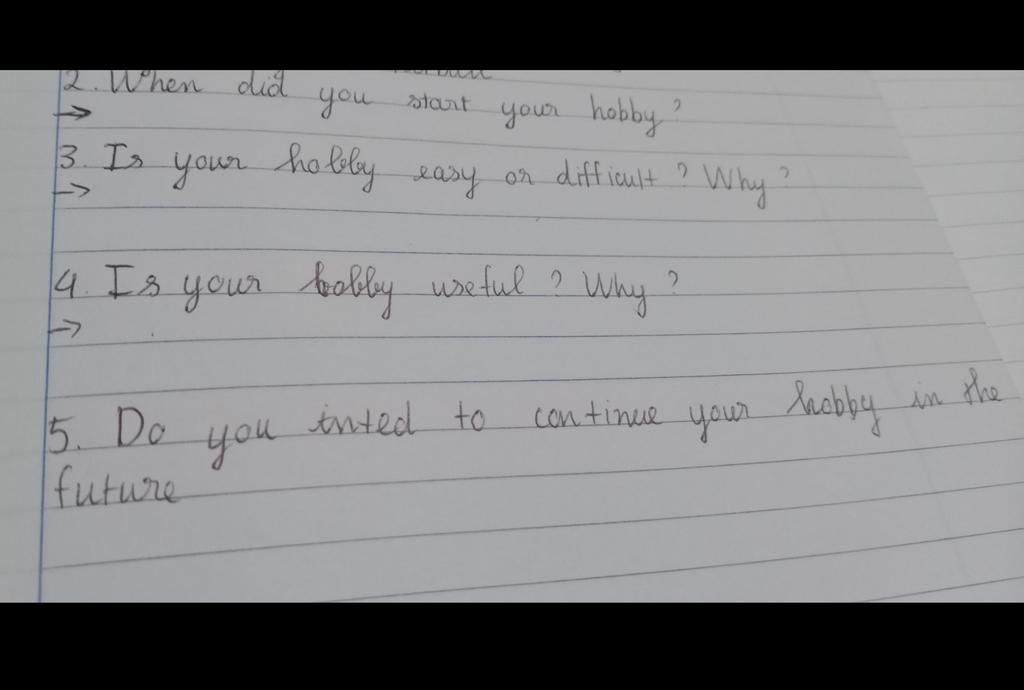 2. When did you start your hobby?
→
3. Is your hobby easy or difficult? Why?
→
4. Is your hobby useful? Why?
→
5. Do you inted to continue your hobby in the
future